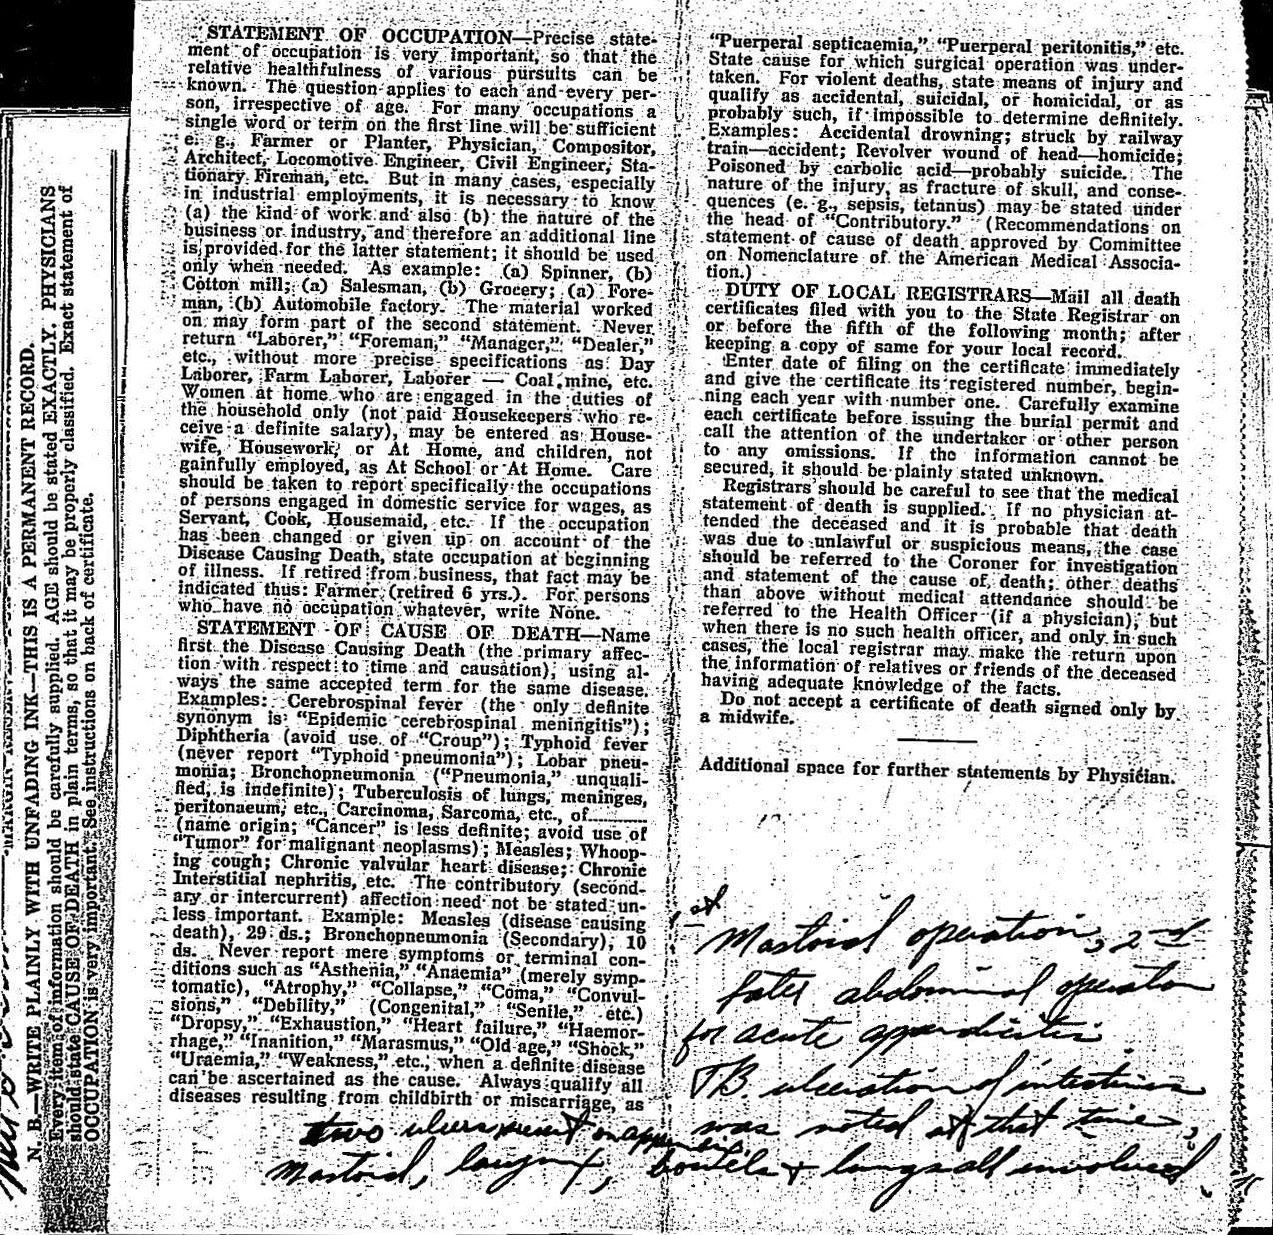 STATEMENT OF OCCUPATION—Precise state-
ment of occupation is very important, so that the
relative healthfulness of various pursuits can be
known. The question applies to each and every per-
son, irrespective of age. For many occupations a
single word or term on the first line will be sufficient
e. g., Farmer or Planter, Physician, Compositor,
Architect, Locomotive Engineer, Civil Engineer, Sta-
tionary Fireman, etc. But in many cases, especially
in industrial employments, it is necessary to know
(a) the kind of work and also (b) the nature of the
business or industry, and therefore an additional line
is provided for the latter statement; it should be used
only when needed. As example: (a) Spinner, (b)
Cotton mill; (a) Salesman, (b) Grocery; (a) Fore-
man, (b) Automobile factory. The material worked
on may form part of the second statement. Never
return "Laborer," "Foreman," "Manager," "Dealer,"
etc., without more precise specifications as Day
Laborer, Farm Laborer, Laborer — Coal mine, etc.
Women at home who are engaged in the duties of
the household only (not paid Housekeepers who re-
ceive a definite salary), may be entered as House-
wife, Housework, or At Home, and children, not
gainfully employed, as At School or At Home. Care
should be taken to report specifically the occupations
of persons engaged in domestic service for wages, as
Servant, Cook, Housemaid, etc. If the occupation
has been changed or given up on account of the
Disease Causing Death, state occupation at beginning
of illness. If retired from business, that fact may be
indicated thus: Farmer (retired 6 yrs.). For persons
who have no occupation whatever, write None.
STATEMENT OF CAUSE OF DEATH—Name
first the Disease Causing Death (the primary affec-
tion with respect to time and causation), using al-
ways the same accepted term for the same disease.
Examples: Cerebrospinal fever (the only definite
synonym is "Epidemic cerebrospinal meningitis");
Diphtheria (avoid use of "Croup"); Typhoid fever
(never report "Typhoid pneumonia"); Lobar pneu-
monia; Bronchopneumonia ("Pneumonia," unquali-
fied, is indefinite); Tuberculosis of lungs, meninges,
peritonaeum, etc., Carcinoma, Sarcoma, etc., of
(name origin; "Cancer" is less definite; avoid use of
"Tumor" for malignant neoplasms); Measles; Whoop-
ing cough; Chronic valvular heart disease; Chronic
Interstitial nephritis, etc. The contributory (second-
ary or intercurrent) affection need not be stated un-
less important. Example: Measles (disease causing
death), 29 ds.; Bronchopneumonia (Secondary), 10
ds. Never report mere symptoms or terminal con-
ditions such as "Asthenia," "Anaemia" (merely symp-
tomatic), "Atrophy," "Collapse," "Coma," "Convul-
sions," "Debility," (Congenital," "Senile," etc.)
"Dropsy," "Exhaustion," "Heart failure," "Haemor-
rhage," "Inanition," "Marasmus," "Old age," "Shock,"
"Uraemia," "Weakness," etc., when a definite disease
can be ascertained as the cause. Always qualify all
diseases resulting from childbirth or miscarriage, as
"Puerperal septicaemia," "Puerperal peritonitis," etc.
State cause for which surgical operation was under-
taken. For violent deaths, state means of injury and
qualify as accidental, suicidal, or homicidal, or as
probably such, if impossible to determine definitely.
Examples: Accidental drowning; struck by railway
train—accident; Revolver wound of head—homicide;
Poisoned by carbolic acid—probably suicide. The
nature of the injury, as fracture of skull, and conse-
quences (e. g., sepsis, tetanus) may be stated under
the head of "Contributory." (Recommendations on
statement of cause of death approved by Committee
on Nomenclature of the American Medical Associa-
tion.)
DUTY OF LOCAL REGISTRARS—Mail all death
certificates filed with you to the State Registrar on
or before the fifth of the following month; after
keeping a copy of same for your local record.
Enter date of filing on the certificate immediately
and give the certificate its registered number, begin-
ning each year with number one. Carefully examine
each certificate before issuing the burial permit and
call the attention of the undertaker or other person
to any omissions. If the information cannot be
secured, it should be plainly stated unknown.
Registrars should be careful to see that the medical
statement of death is supplied. If no physician at-
tended the deceased and it is probable that death
was due to unlawful or suspicious means, the case
should be referred to the Coroner for investigation
and statement of the cause of death; other deaths
than above without medical attendance should be
referred to the Health Officer (if a physician), but
when there is no such health officer, and only in such
cases, the local registrar may make the return upon
the information of relatives or friends of the deceased
having adequate knowledge of the facts.
Do not accept a certificate of death signed only by
a midwife.
Additional space for further statements by Physician.
1st
Mastoid operation, 2nd
later abdominal operation
for acute appendicitis
TB. ulceration of intestines
was noted at that time,
two ulcers present on appendix
Mastoid, larynx, bowels + lungs all involved.
N. B.—WRITE PLAINLY WITH UNFADING INK—THIS IS A PERMANENT RECORD.
Every item of information should be carefully supplied. AGE should be stated EXACTLY. PHYSICIANS
should state CAUSE OF DEATH in plain terms, so that it may be properly classified. Exact statement of
OCCUPATION is very important. See instructions on back of certificate.